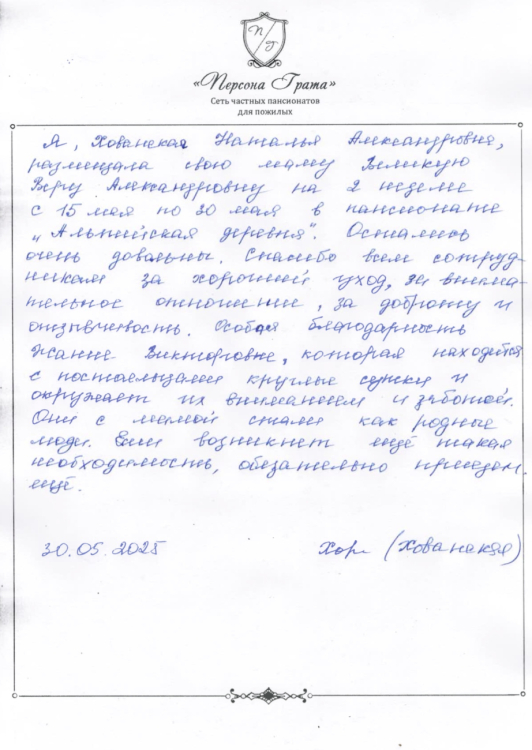 П Г
«Персона Грата»
Сеть частных пансионатов
для пожилых
Я, Хованская Наталья Александровна,
размещала свою маму Великую
Веру Александровну на 2 недели
с 15 мая по 30 мая в пансионате
„Альпийская деревня“. Остались
очень довольны. Спасибо всем сотруд-
никам за хороший уход, за внима-
тельное отношение, за доброту и
отзывчивость. Особая благодарность
Жанне Викторовне, которая находится
с постояльцами круглые сутки и
окружает их вниманием и заботой.
Они с мамой стали как родные
люди. Если возникнет ещё такая
необходимость, обязательно приедем
ещё.
30.05.2025 (Хованская)